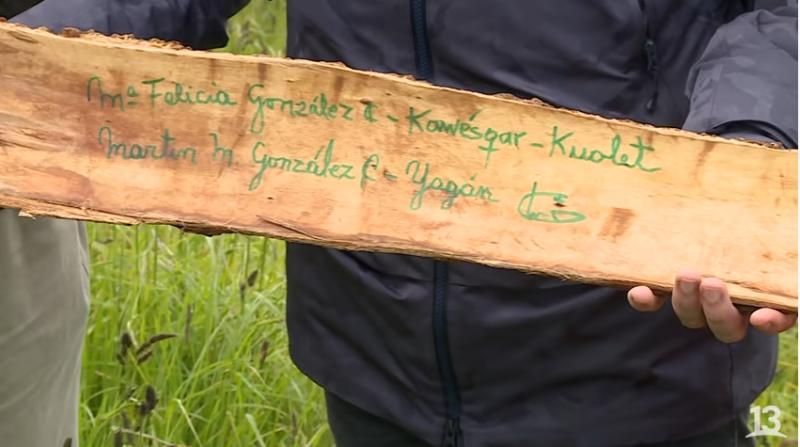 Mª Felicia González C - Kawésqar - Kualet
Martín M. González C - Yagán
13